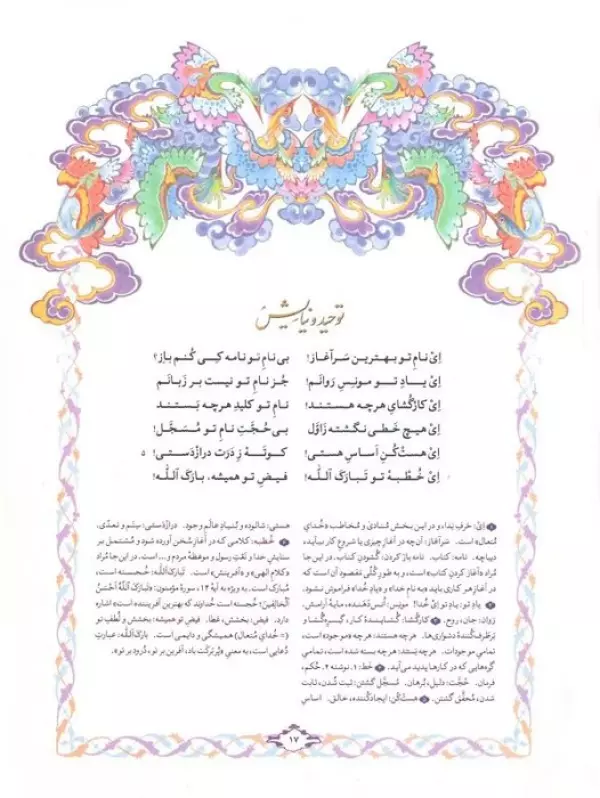 توحید و نیایش
اِیْ نامِ تو بهترین سَرآغاز! بی نامِ تو نامه کِی کُنم باز؟
اِیْ یادِ تو مونسِ رَوانم! جُز نامِ تو نیست بر زَبانَم
اِیْ کارگُشایِ هرچه هستند! نامِ تو کلیدِ هرچه بَستند
اِیْ هیچ خَطی نگشته زَاوّل بی حُجَّتِ نامِ تو مُسَجَّل!
اِیْ هست‌کُنِ اَساسِ هستی! کوته زِ دَرَت درازدَستی! ۵
اِیْ خُطبهٔ تو تَبارَکَ اَللّٰه! فیضِ تو همیشه، بارَکَ اَللّٰه!
۱ اِیْ: حرفِ نِدا، و در این بخش مُنادیٰ و مُخاطَب «خُدایِ
مُتعال» است. سَرآغاز: آن‌چه در آغازِ چیزی یا شروعِ کار بیاید،
دیباچه. نامه: کتاب. نامه باز کردن: گُشودنِ کتاب. در این جا
مُراد «آغاز کردنِ کتاب» است، و به طورِ کُلّی مَقصود آن است که
در آغازِ هر کاری باید «به نامِ خدا» و «یادِ خدا» فراموش نشود.
۲ یادِ تو: یادِ تو اِیْ خُدا! مونِس: اُنس‌دهنده، مایهٔ آرامش.
رَوان: جان، روح. ۳ کارگُشا: گُشایندهٔ کار، گِره‌گُشا و
برطرف‌کُنندهٔ دشواری‌ها. هرچه هستند: هرچه «موجود» است،
تمامیِ موجودات. هرچه بَستند: هرچه بسته شده است، تمامیِ
گِره‌هایی که در کارها پدید می‌آید. ۴ خَط: ۱. نوشته ۲. حُکم،
فرمان. حُجَّت: دلیل، بُرهان. مُسَجَّل گشتن: ثبت شدن، ثابت
شدن، مُحقّق گشتن. ۵ هست‌کُن: ایجادکُننده، خالق. اساسِ
هستی: شالوده و بُنیادِ عالَمِ وجود. درازدَستی: ستم و تعدّی.
۶ خُطبه: کلامی که در آغازِ سُخن آورده شود و مُشتمل بر
ستایشِ خدا و نَعتِ رسول و موعظهٔ مردم و... است. در این جا مُراد
«کلامِ الهی» و «آفرینش» است. تَبارَکَ اَللّٰه: خُجسته است،
مُبارک است. به ویژه به آیهٔ ۱۴ سورهٔ مؤمنون: «تَبارَکَ اَللّٰهُ أحْسَنُ
اَلْخالِقینَ: خُجسته است خُداوند که بهترین آفریننده است» اشاره
دارد. فیض: بخشش، عَطا. فیضِ تو همیشه: بخشش و لُطفِ تو
(= خُدایِ مُتعال) همیشگی و دایمی است. بارَکَ اَللّٰه: عبارتِ
دُعایی است، به معنیِ «پُربَرکَت باد، آفرین بر تو، دُرود بر تو».
۱۷